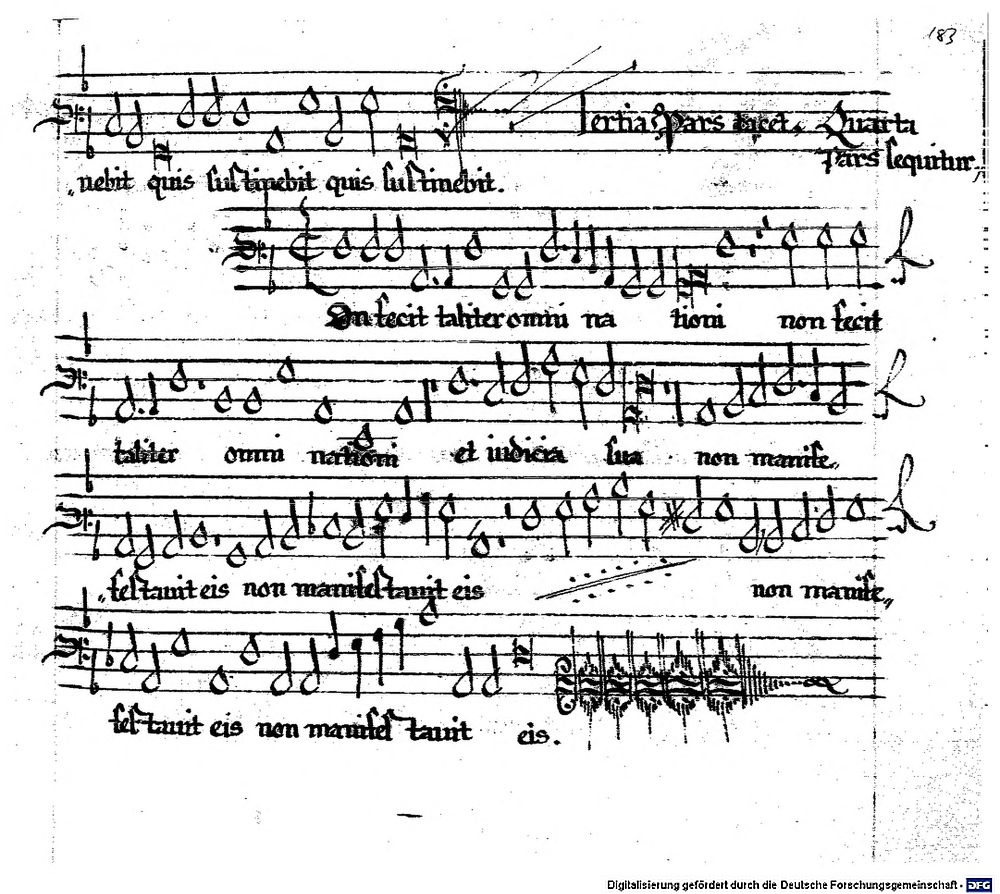 183
Tertia Pars tacet. Quarta
Pars sequitur.
nebit quis sustinebit quis sustinebit.
On fecit taliter omni nationi non fecit
taliter omni nationi et iudicia sua non manife„
„festauit eis non manifestauit eis non manife„
festauit eis non manifestauit eis.
Digitalisierung gefördert durch die Deutsche Forschungsgemeinschaft - DFG